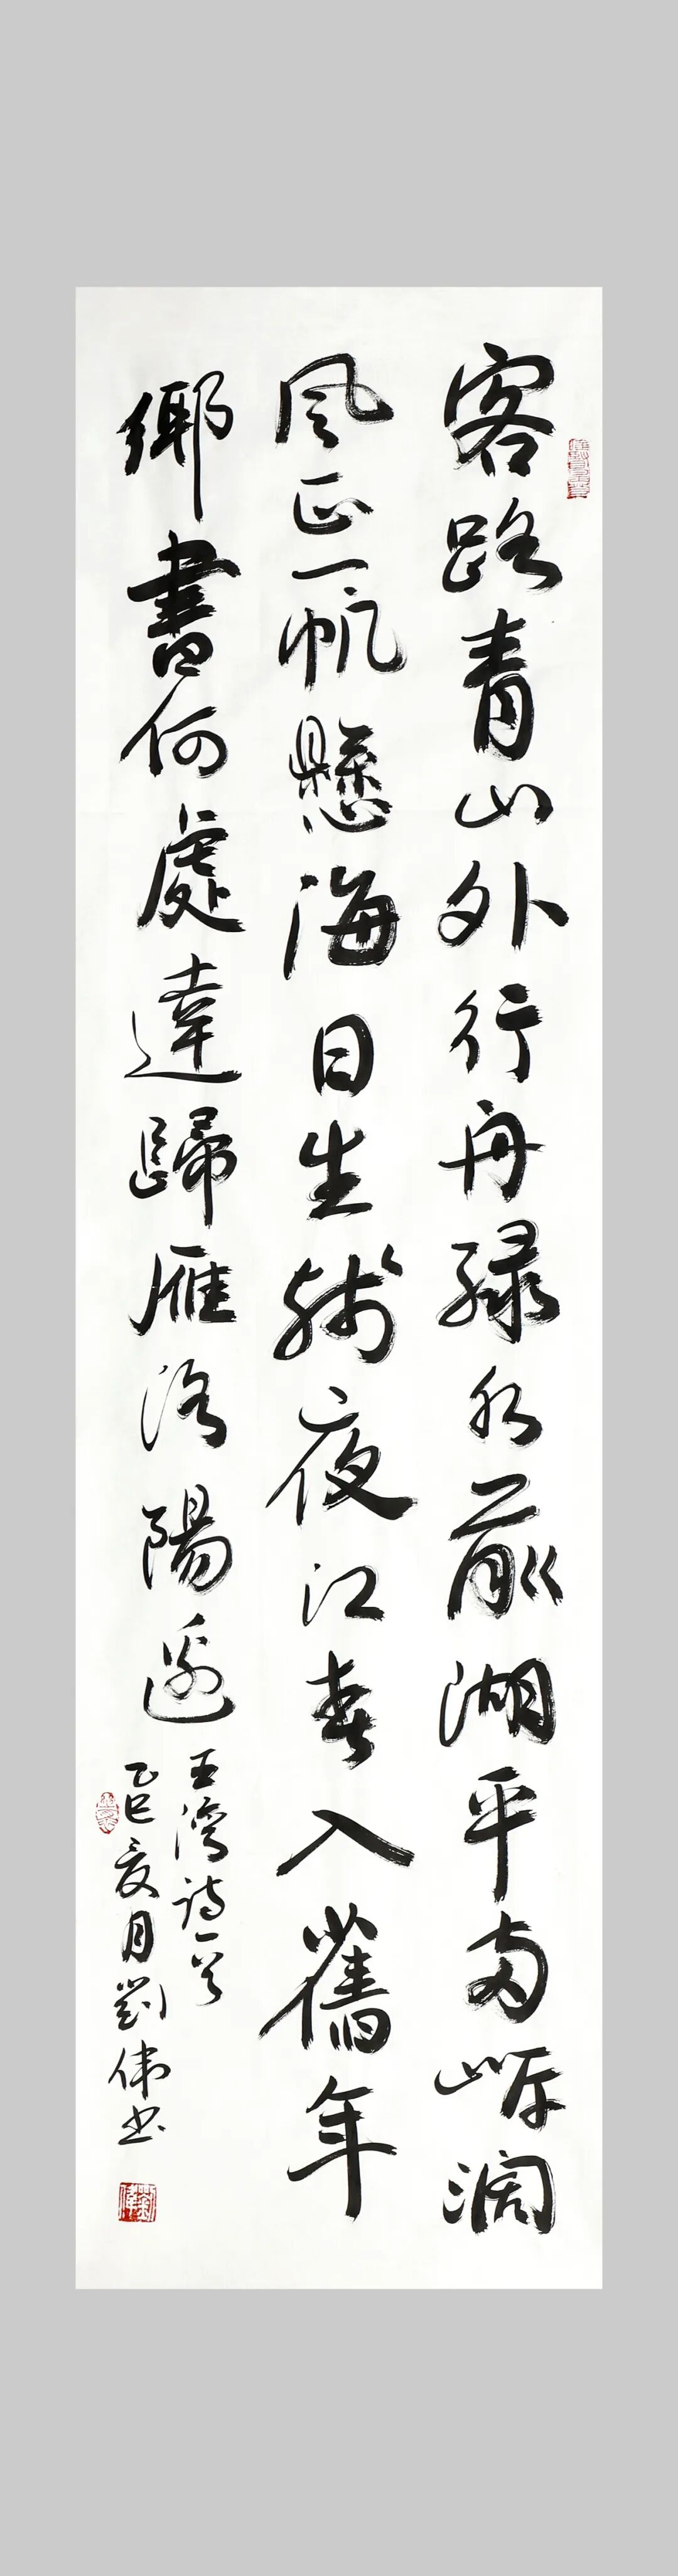 客路青山外行舟緑水前潮平兩岸濶
風正一帆懸海日生殘夜江春入舊年
鄉書何處達歸雁洛陽邊
王灣詩一首
乙巳夏月劉偉书
劉偉